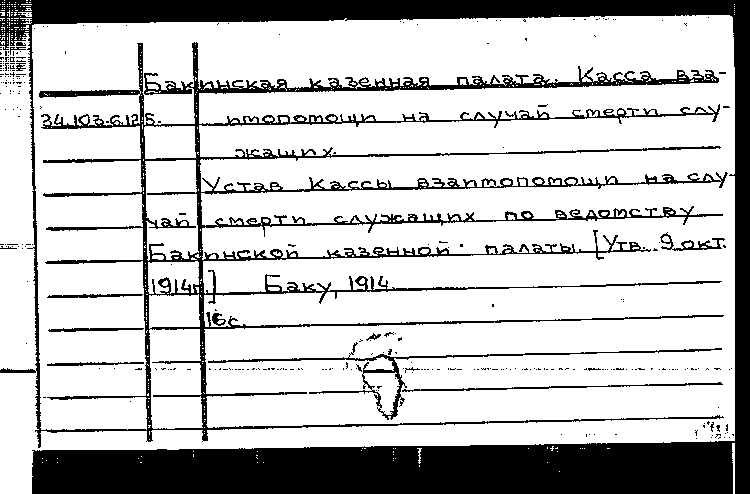 Бакинская казенная палата. Касса вза-
34.103.6.125. имопомощи на случай смерти слу-
жащих.
Устав Кассы взаимопомощи на слу-
чай смерти служащих по ведомству
Бакинской казенной палаты. [Утв. 9 окт.
1914г.] Баку, 1914.
16 с.